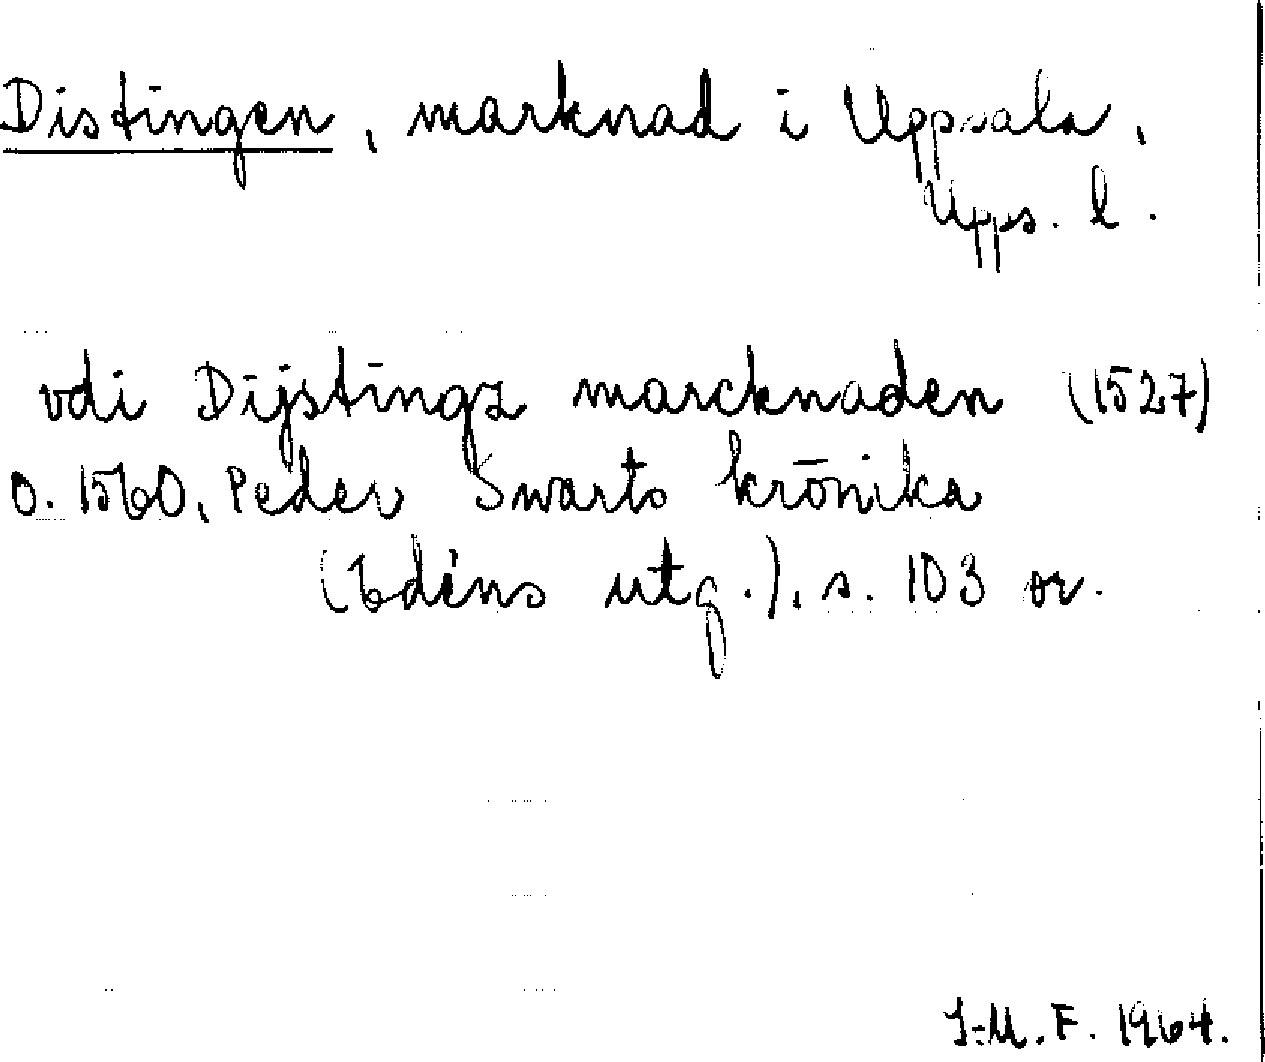 Distingen, marknad i Uppsala,
Upps. l.
vdi Dijstingz marcknaden (1527)
o. 1560, Peder Swarts krönika
(Edéns utg.), s. 103 or.
I-M. F. 1964.